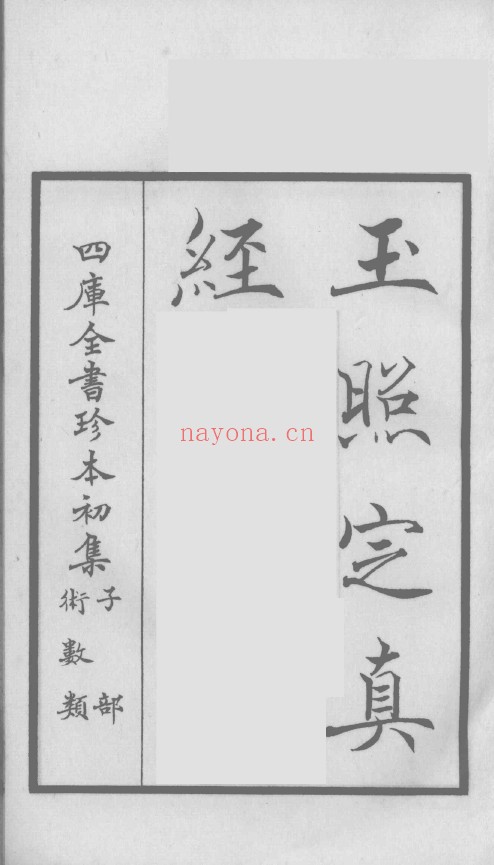 玉照定真
經
四庫全書珍本初集
子部
術數類
nayona.cn